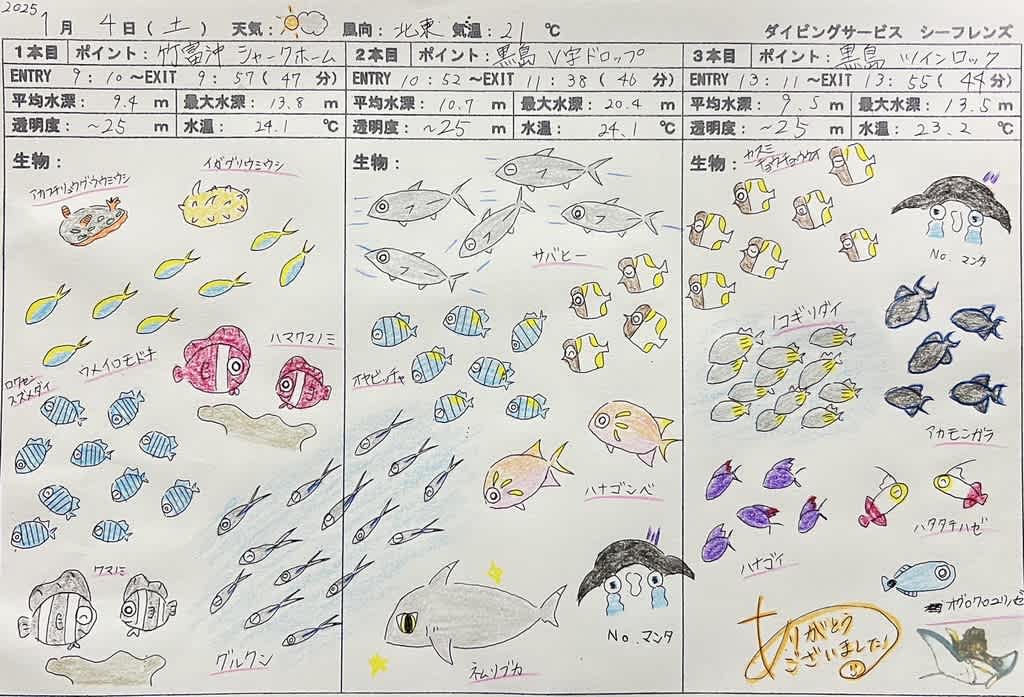 2025
1月 4日(土) 天気: 風向: 北東 気温: 21 ℃ ダイビングサービス シーフレンズ
1本目 ポイント: 竹富沖 シャークホーム
ENTRY 9:10～EXIT 9:57(47 分)
平均水深: 9.4 m 最大水深: 13.8 m
透明度: ~25 m 水温: 24.1 ℃
生物:
アカフチリュウグウウミウシ
イガグリウミウシ
ウメイロモドキ
ハマクマノミ
ロクセン
スズメダイ
クマノミ
グルクン
2本目 ポイント: 黒島 V字ドロップ
ENTRY 10:52～EXIT 11:38(46 分)
平均水深: 10.7 m 最大水深: 20.4 m
透明度: ~25 m 水温: 24.1 ℃
生物:
サバヒー
オヤビッチャ
ハナゴンベ
No.マンタ
ネムリブカ
3本目 ポイント: 黒島 ツインロック
ENTRY 13:11～EXIT 13:55(44 分)
平均水深: 9.5 m 最大水深: 13.5 m
透明度: ~25 m 水温: 23.2 ℃
生物:
カスミ
チョウチョウウオ
No.マンタ
ノコギリダイ
アカモンガラ
ハナゴイ
ハタタテハゼ
オグロクロユリハゼ
ありがとう
ございました!